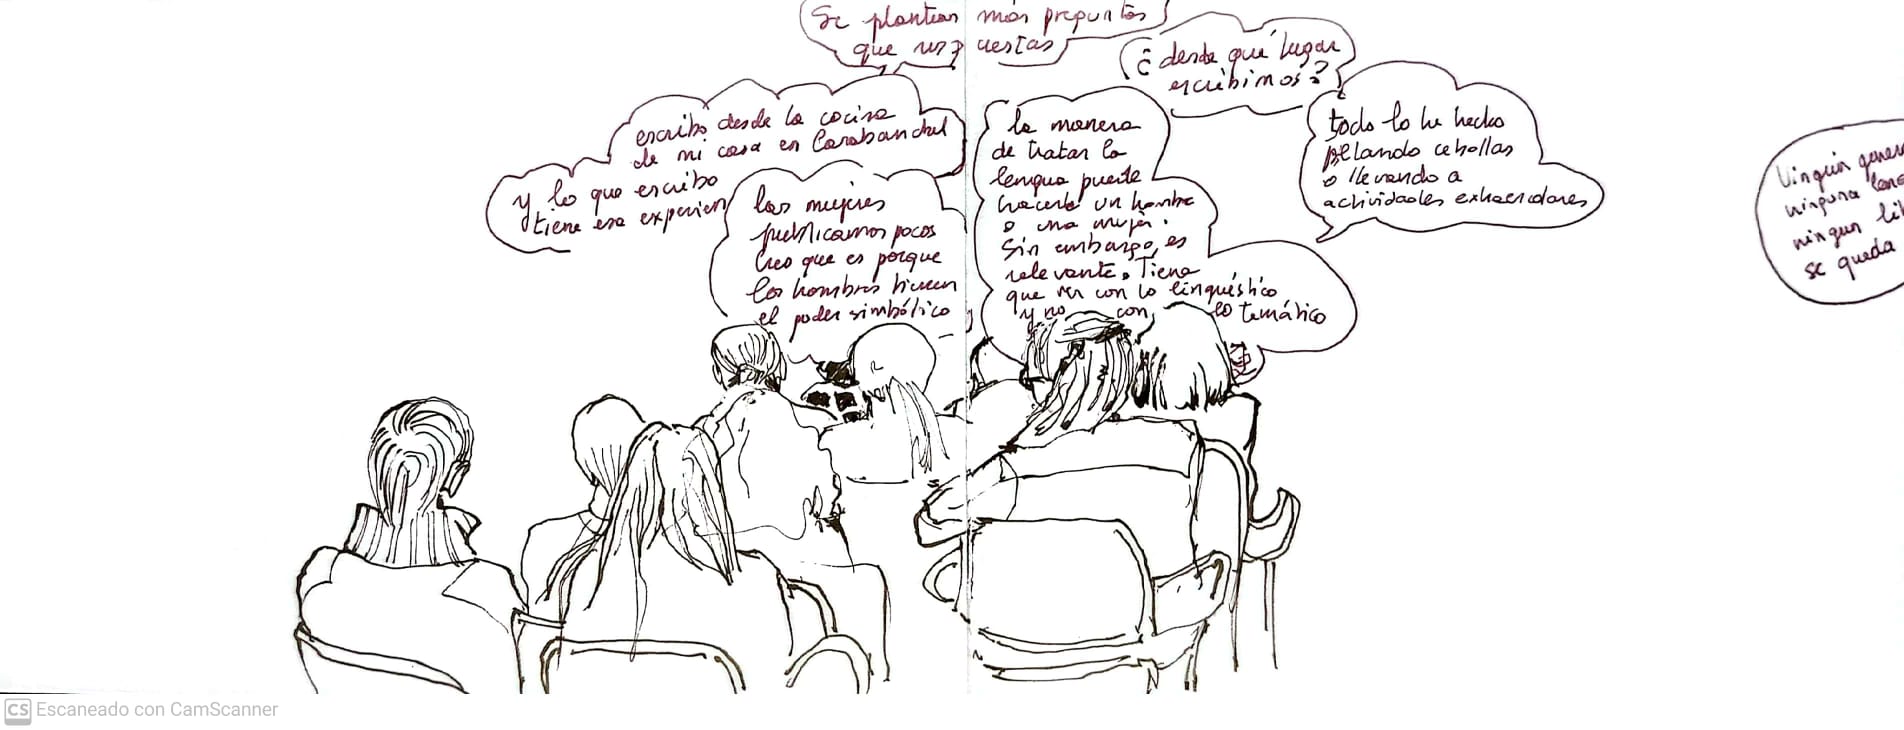 Se plantean más preguntas
que respuestas
¿desde qué lugar
escribimos?
escribo desde la cocina
de mi casa en Carabanchel
y lo que escribo
tiene esa experien
las mujeres
publicamos pocos
Creo que es porque
los hombres tienen
el poder simbólico
la manera
de tratar la
lengua puede
hacerla un hombre
o una mujer.
Sin embargo, es
relevante. Tiene
que ver con lo lingüístico
y no con lo temático
todo lo he hecho
pelando cebollas
o llevando a
actividades extraescolares
Ningún
ninguna
ningun
se queda
CS Escaneado con CamScanner